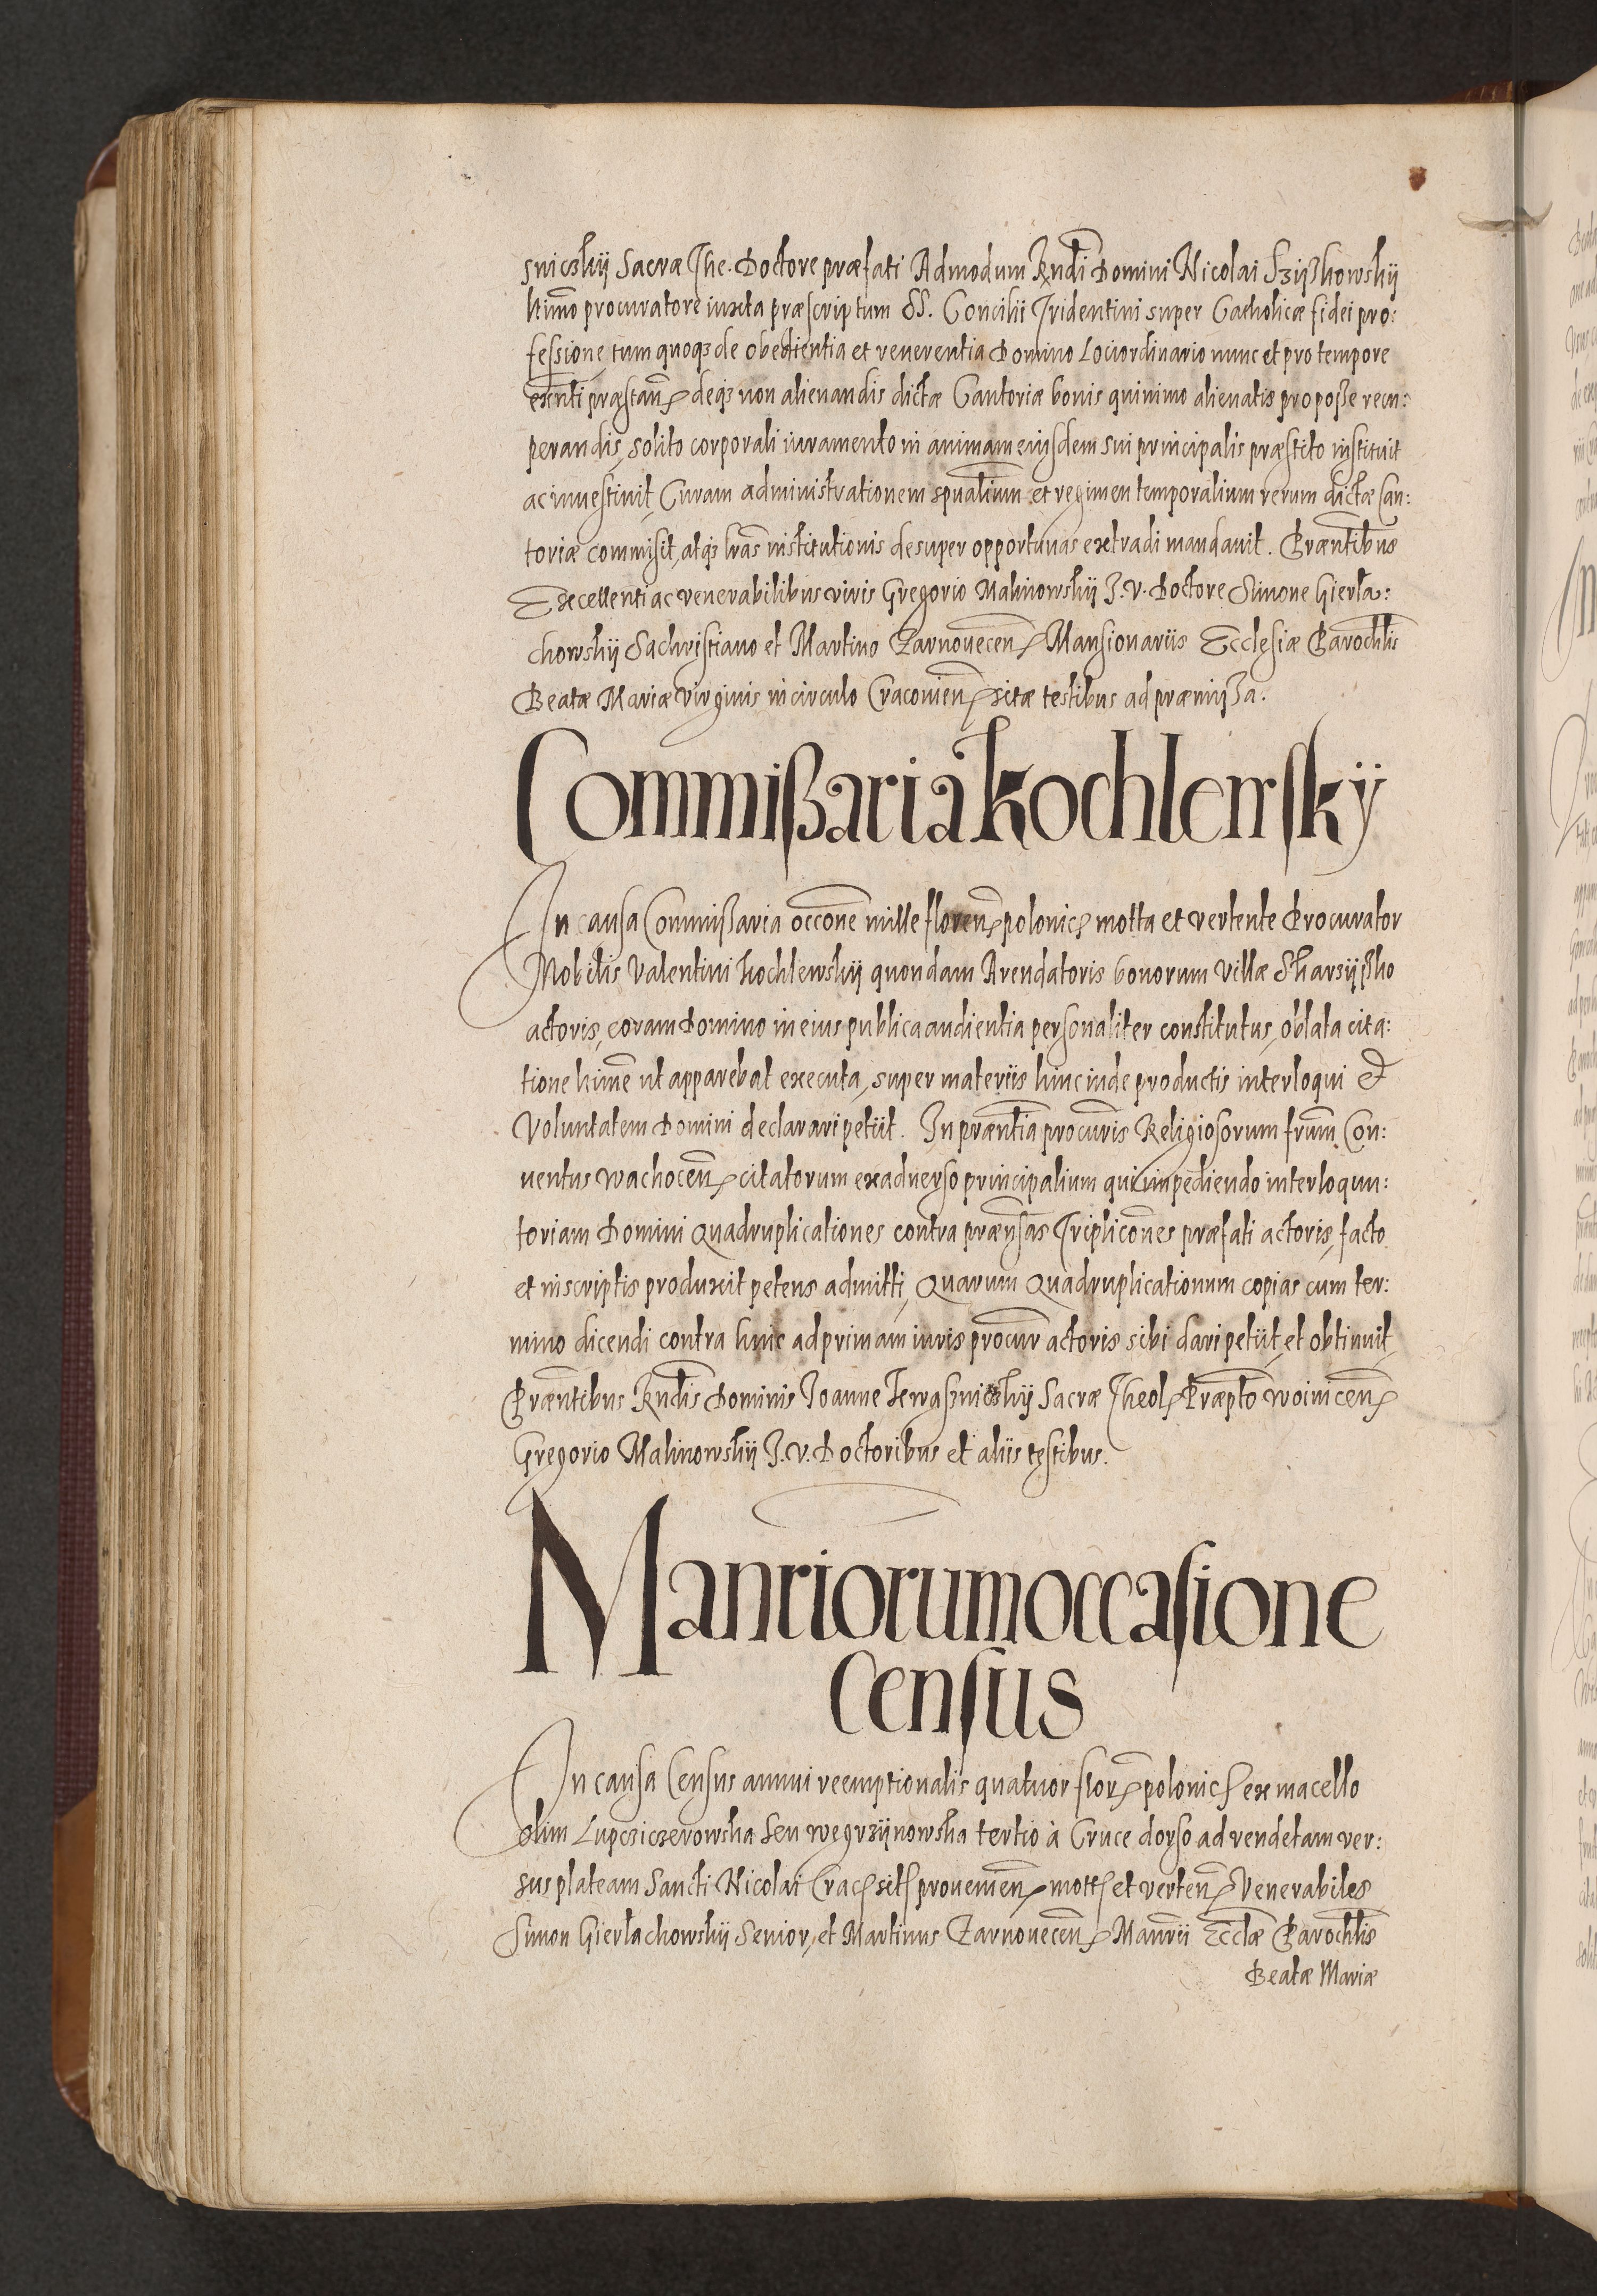 sniczkij Sacræ The. Doctore præfati Admodum Rndi Domini Nicolai Szijszkowskij
ltimo procuratore iuxta præscriptum SS. Concilii Tridentini super Catholicæ fidei pro:
fessione, tum quoqz de obedientia et reverentia Domino Lociordinario nunc et pro tempore
exenti præstan deqz non alienandis dictæ Cantoriæ bonis quinimo alienatis pro posse recu:
perandis, solito corporali iuramento in animam eiusdem sui principalis præstito instituit
ac inuestiuit, Curam administrationem spualium et regimen temporalium rerum dictæ Can:
toriæ commisit, atqz lras institutionis desuper opportunas extradi mandauit. Præntibus
Excellenti ac venerabilibus viris Gregorio Malinowskij J. V. Doctore Simone Gierla:
chowskij Sachristiano et Martino Zarnouecen Mansionariis Ecclesiæ Parochlis
Beatæ Mariæ Virginis in circulo Cracouien sitæ testibus ad præmissa.
Commissaria Kochlewskÿ
In causa Commissaria occone mille floren polonic motta et vertente Procurator
Nobilis Valentini Kochlewskij quondam Arendatoris bonorum villæ Skarsijsko
actoris, coram Domino in eius publica audientia personaliter constitutus, oblata cita:
tione ltime ut apparebat executa, super materiis hincinde productis interloqui Et
Voluntatem Domini declarari petiit. In præntia procuris Religiosorum frum Con:
uentus Wachocen citatorum exaduerso principalium qui impediendo interloqun:
toriam Domini Quadruplicationes contra prænsas Triplicones præfati actoris, facto
et inscriptis produxit petens admitti, Quarum Quadruplicationum copias cum ter:
mino dicendi contra hinc ad primam iuris procur actoris sibi dari petiit, et obtinuit
Præntibus Rndis Dominis Joanne Sacræ Theol Præpto Woinicen
Gregorio Malinowskij J. V. Doctoribus et aliis testibus.
Manriorum occasione
Census
In causa Census annui reemptionalis quatuor flor polonic ex macello
olim Lupcziczerowska seu Wegrzijnowska tertio à Cruce dorso ad vendetam ver:
sus plateam Sancti Nicolai Crac sit prouenien mott et verten Venerabiles
Simon Gierlachowskij Senior, et Martinus Zarnouecen Manrii Ecclæ Parochlis
Beatæ Mariæ